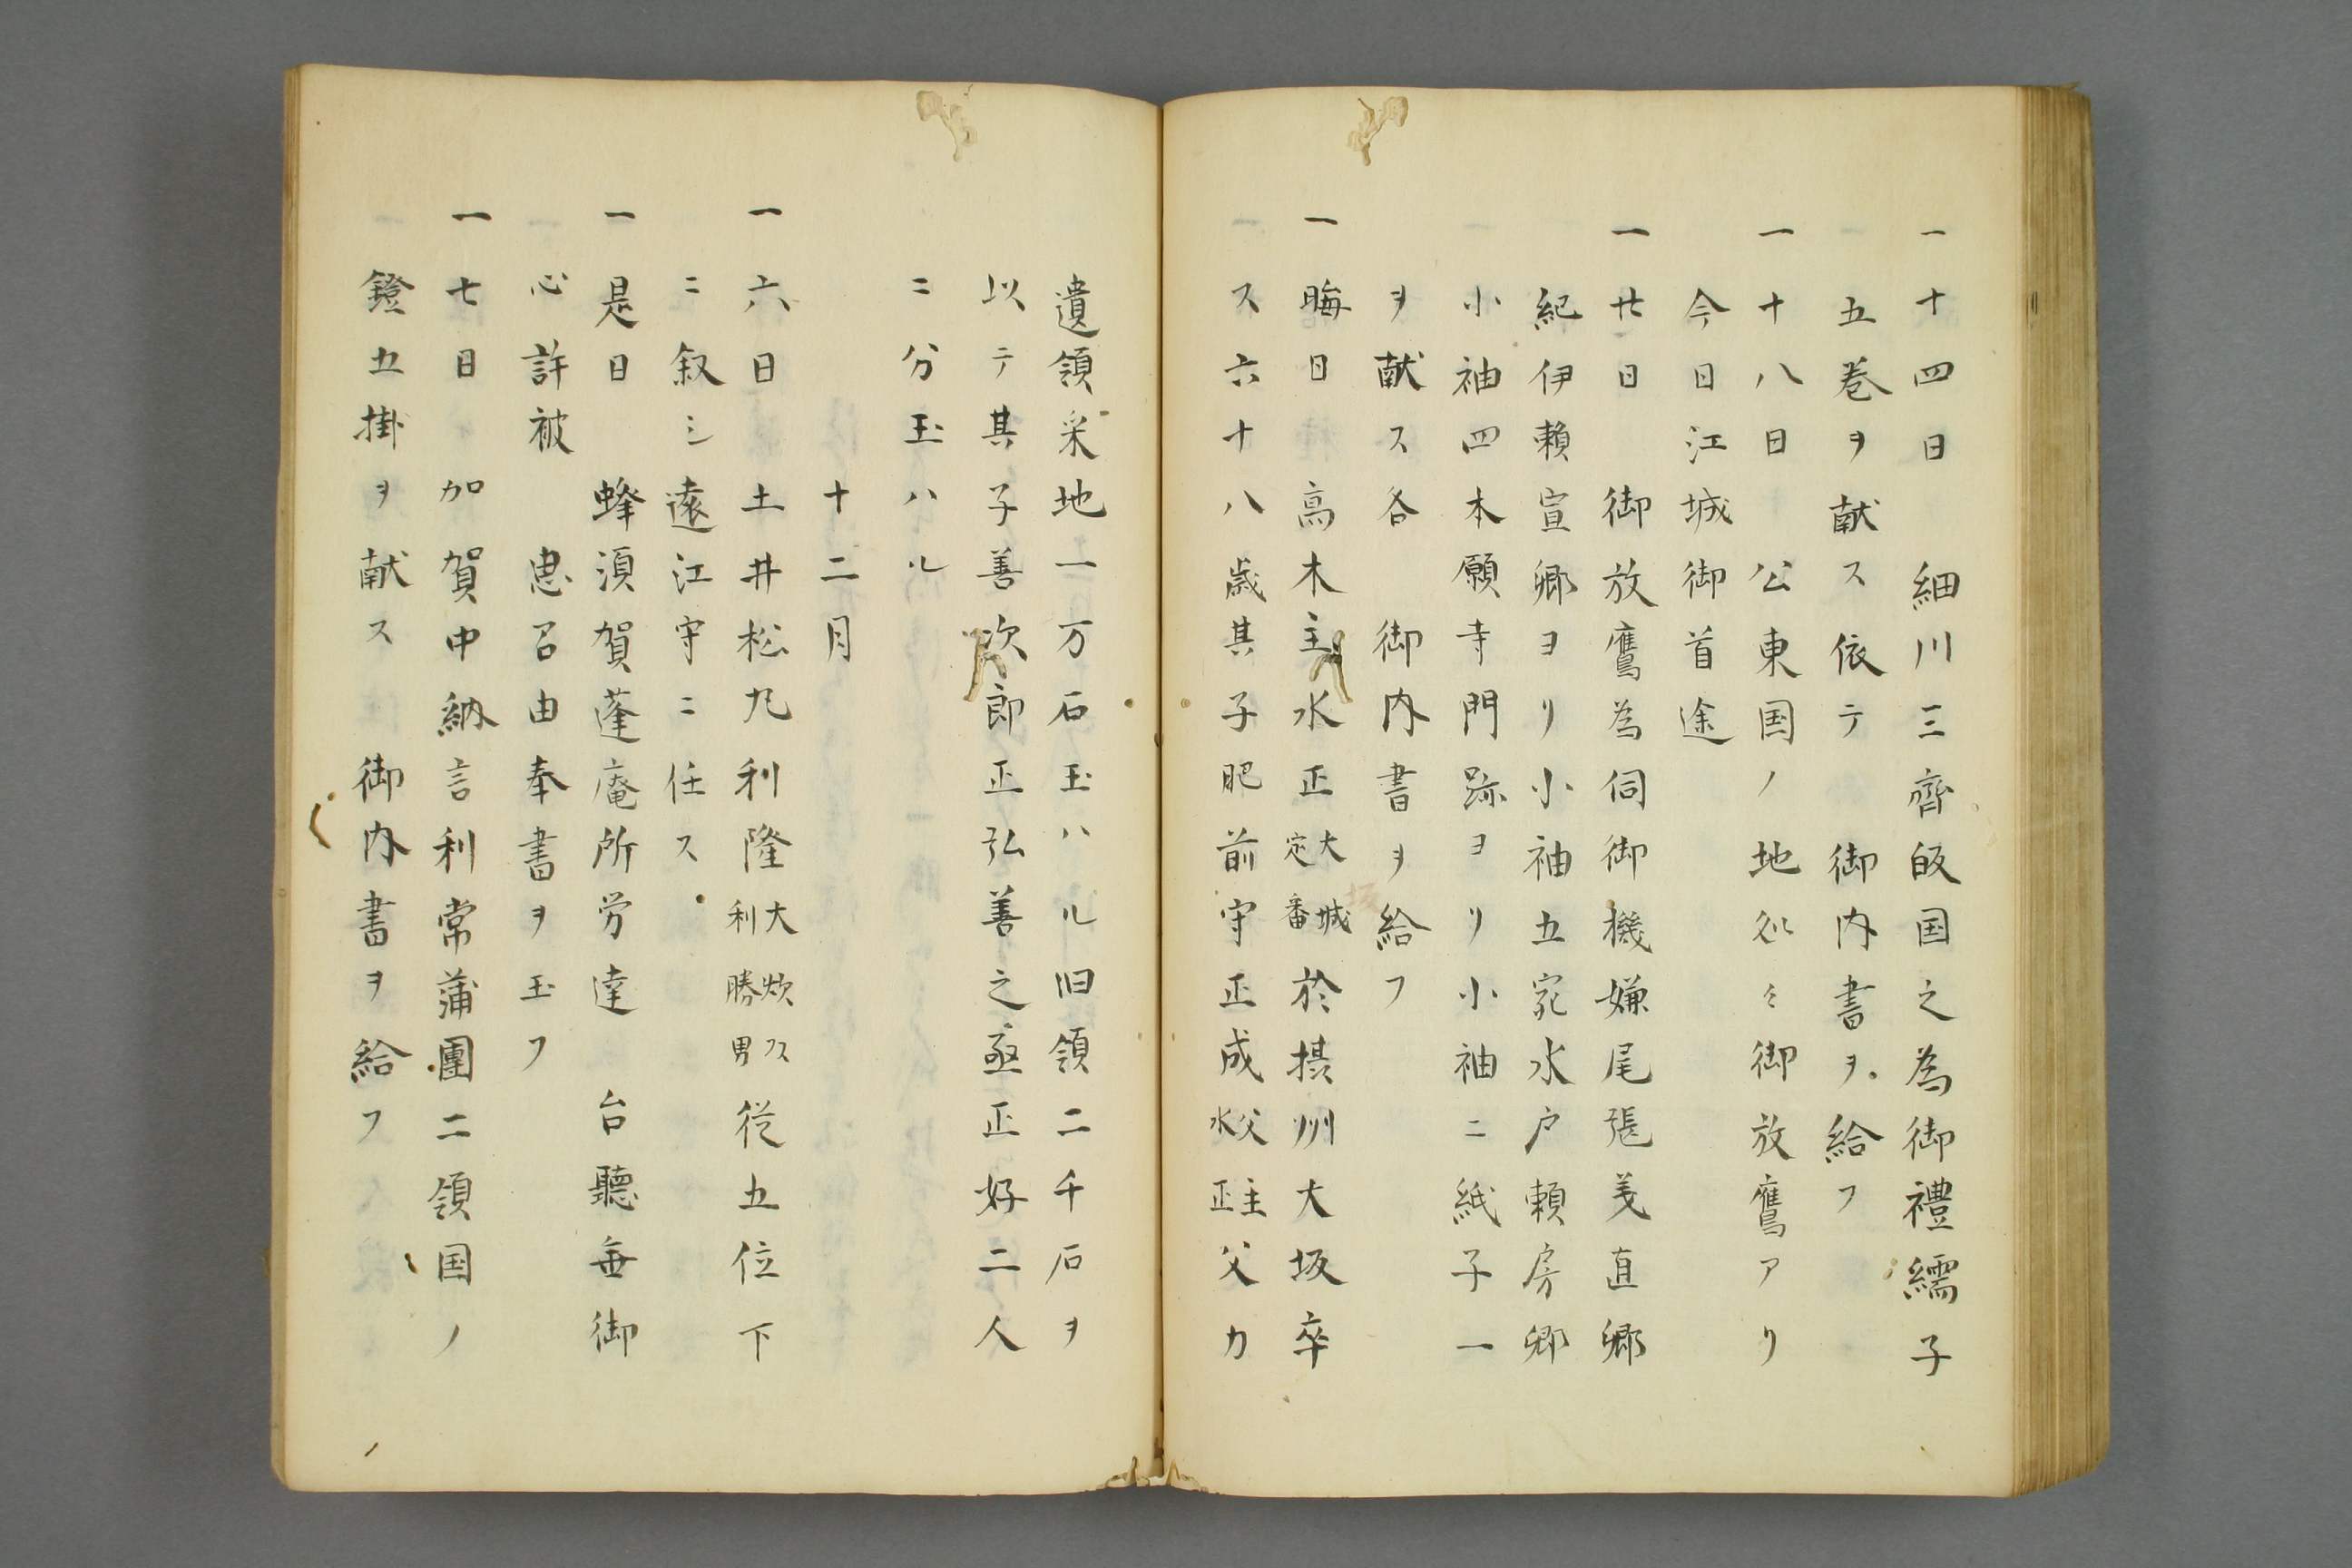 一十四日　細川三齊皈国之為御禮繻子
五巻ヲ献ス依テ　御内書ヲ給フ
一十八日　公東国ノ地処々御放鷹アリ
今日江城御首途
一廿日　御放鷹為伺御機嫌尾張義直卿
紀伊頼宣卿ヨリ小袖五宛水戸頼房卿
小袖四本願寺門跡ヨリ小袖二紙子一
ヲ献ス各　御内書ヲ給フ
一晦日　高木主水正大城定番於摂州大坂卒
ス六十八歳其子肥前守正成父主水正父カ
遺領采地一万石玉ハル旧領二千石ヲ
以テ其子善次郎正弘善之丞正好二人
ニ分玉ハル
十二月
一六日　土井松九利隆大炊利勝男従五位下
ニ叙シ遠江守ニ任ス
一是日　蜂須賀蓬庵所労達　台聽無御
心許被　思召由奉書ヲ玉フ
一七日　加賀中納言利常蒲團二領国ノ
鐙五掛ヲ献ス　御内書ヲ給フ